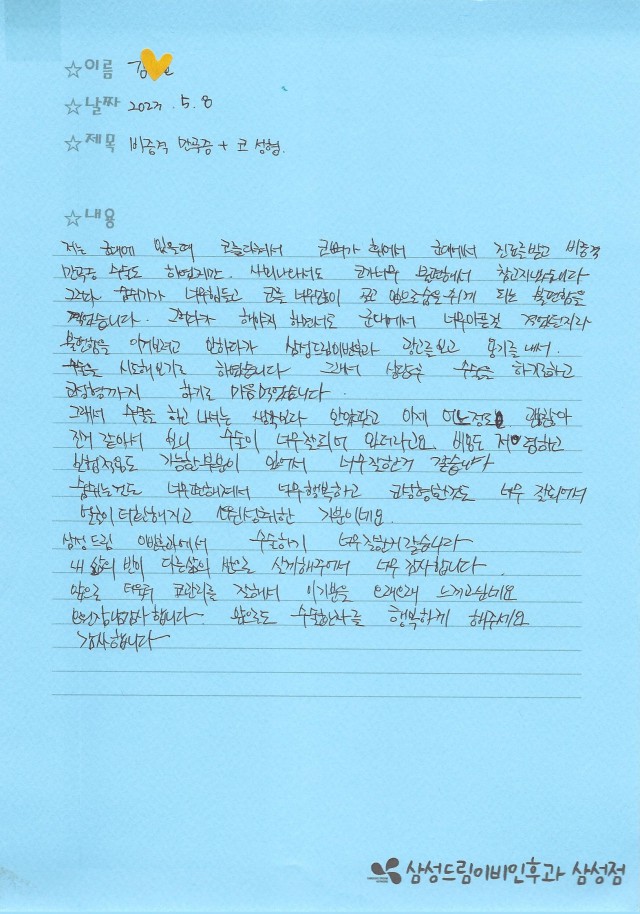 ☆이름 김
☆날짜 2027. 5. 8
☆제목 비중격 만곡증 + 코 성형.
☆내용
저는 군대에 있을때 코를다쳐서 코뼈가 휘어서 군대에서 진료를받고 비중격
만곡증 수술도 하였지만. 사회나와서도 코가너무 불편해서 참고지냈습니다
그러다 숨쉬기가 너무힘들고 코를 너무많이 골고 입으로숨을쉬게 되는 불편함을
겪었습니다. 그러다가 해야지 하면서도 군대에서 너무아픈걸 경험한지라
불편함을 이겨보려고 안하다가 삼성드림이비인후과 광고를보고 용기를 내서.
수술을 시도해보기로 하였습니다 그래서 상담후 수술을 하기로하고
코성형까지 하기로 마음먹었습니다.
그래서 수술을 하고 나서는 생각보다 안아팠고 이제 어느정도 괜찮아
진거 같아서 보니 수술이 너무잘되어 있더라고요. 비용도 저렴하고
보험적용도 가능한부분이 있어서 너무잘한거 같습니다
숨쉬는것도 너무편해져서 너무행복하고 코성형한것도 너무 잘되어서
얼굴이 더환해지고 성취한 기분이네요.
삼성드림 이비후과에서 수술하기 너무잘한거같습니다
내 삶의 반이 다른삶의 반으로 살게해주어서 너무 감사합니다.
앞으로 더욱더 코관리를 잘해서 이기분을 오래오래 느끼고싶네요
감사합니다 앞으로도 수술환자를 행복하게 해주세요
감사합니다
삼성드림이비인후과 삼성점